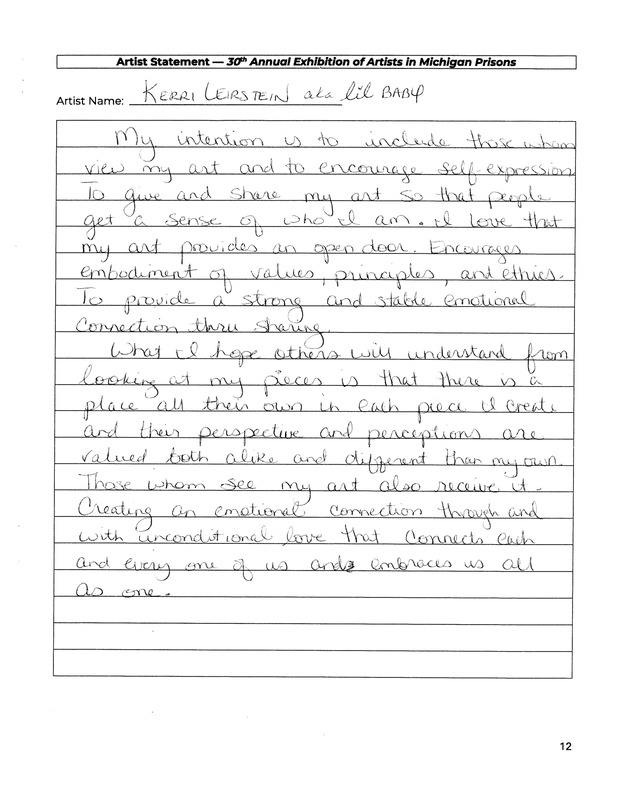 Artist Statement — 30th Annual Exhibition of Artists in Michigan Prisons
Artist Name: KERRI LEIRSTEIN aka lil BABY
My intention is to include those whom
view my art and to encourage self-expression
To give and share my art so that people
get a sense of who I am. I love that
my art provides an open door. Encourages
embodiment of values, principles, and ethics.
To provide a strong and stable emotional
Connection thru sharing.
What I hope others will understand from
looking at my pieces is that there is a
place all their own in each piece I create
and their perspective and perceptions are
valued both alike and different than my own.
Those whom see my art also receive it.
Creating an emotional connection through and
with unconditional love that connects each
and every one of us and embraces us all
as one.
12